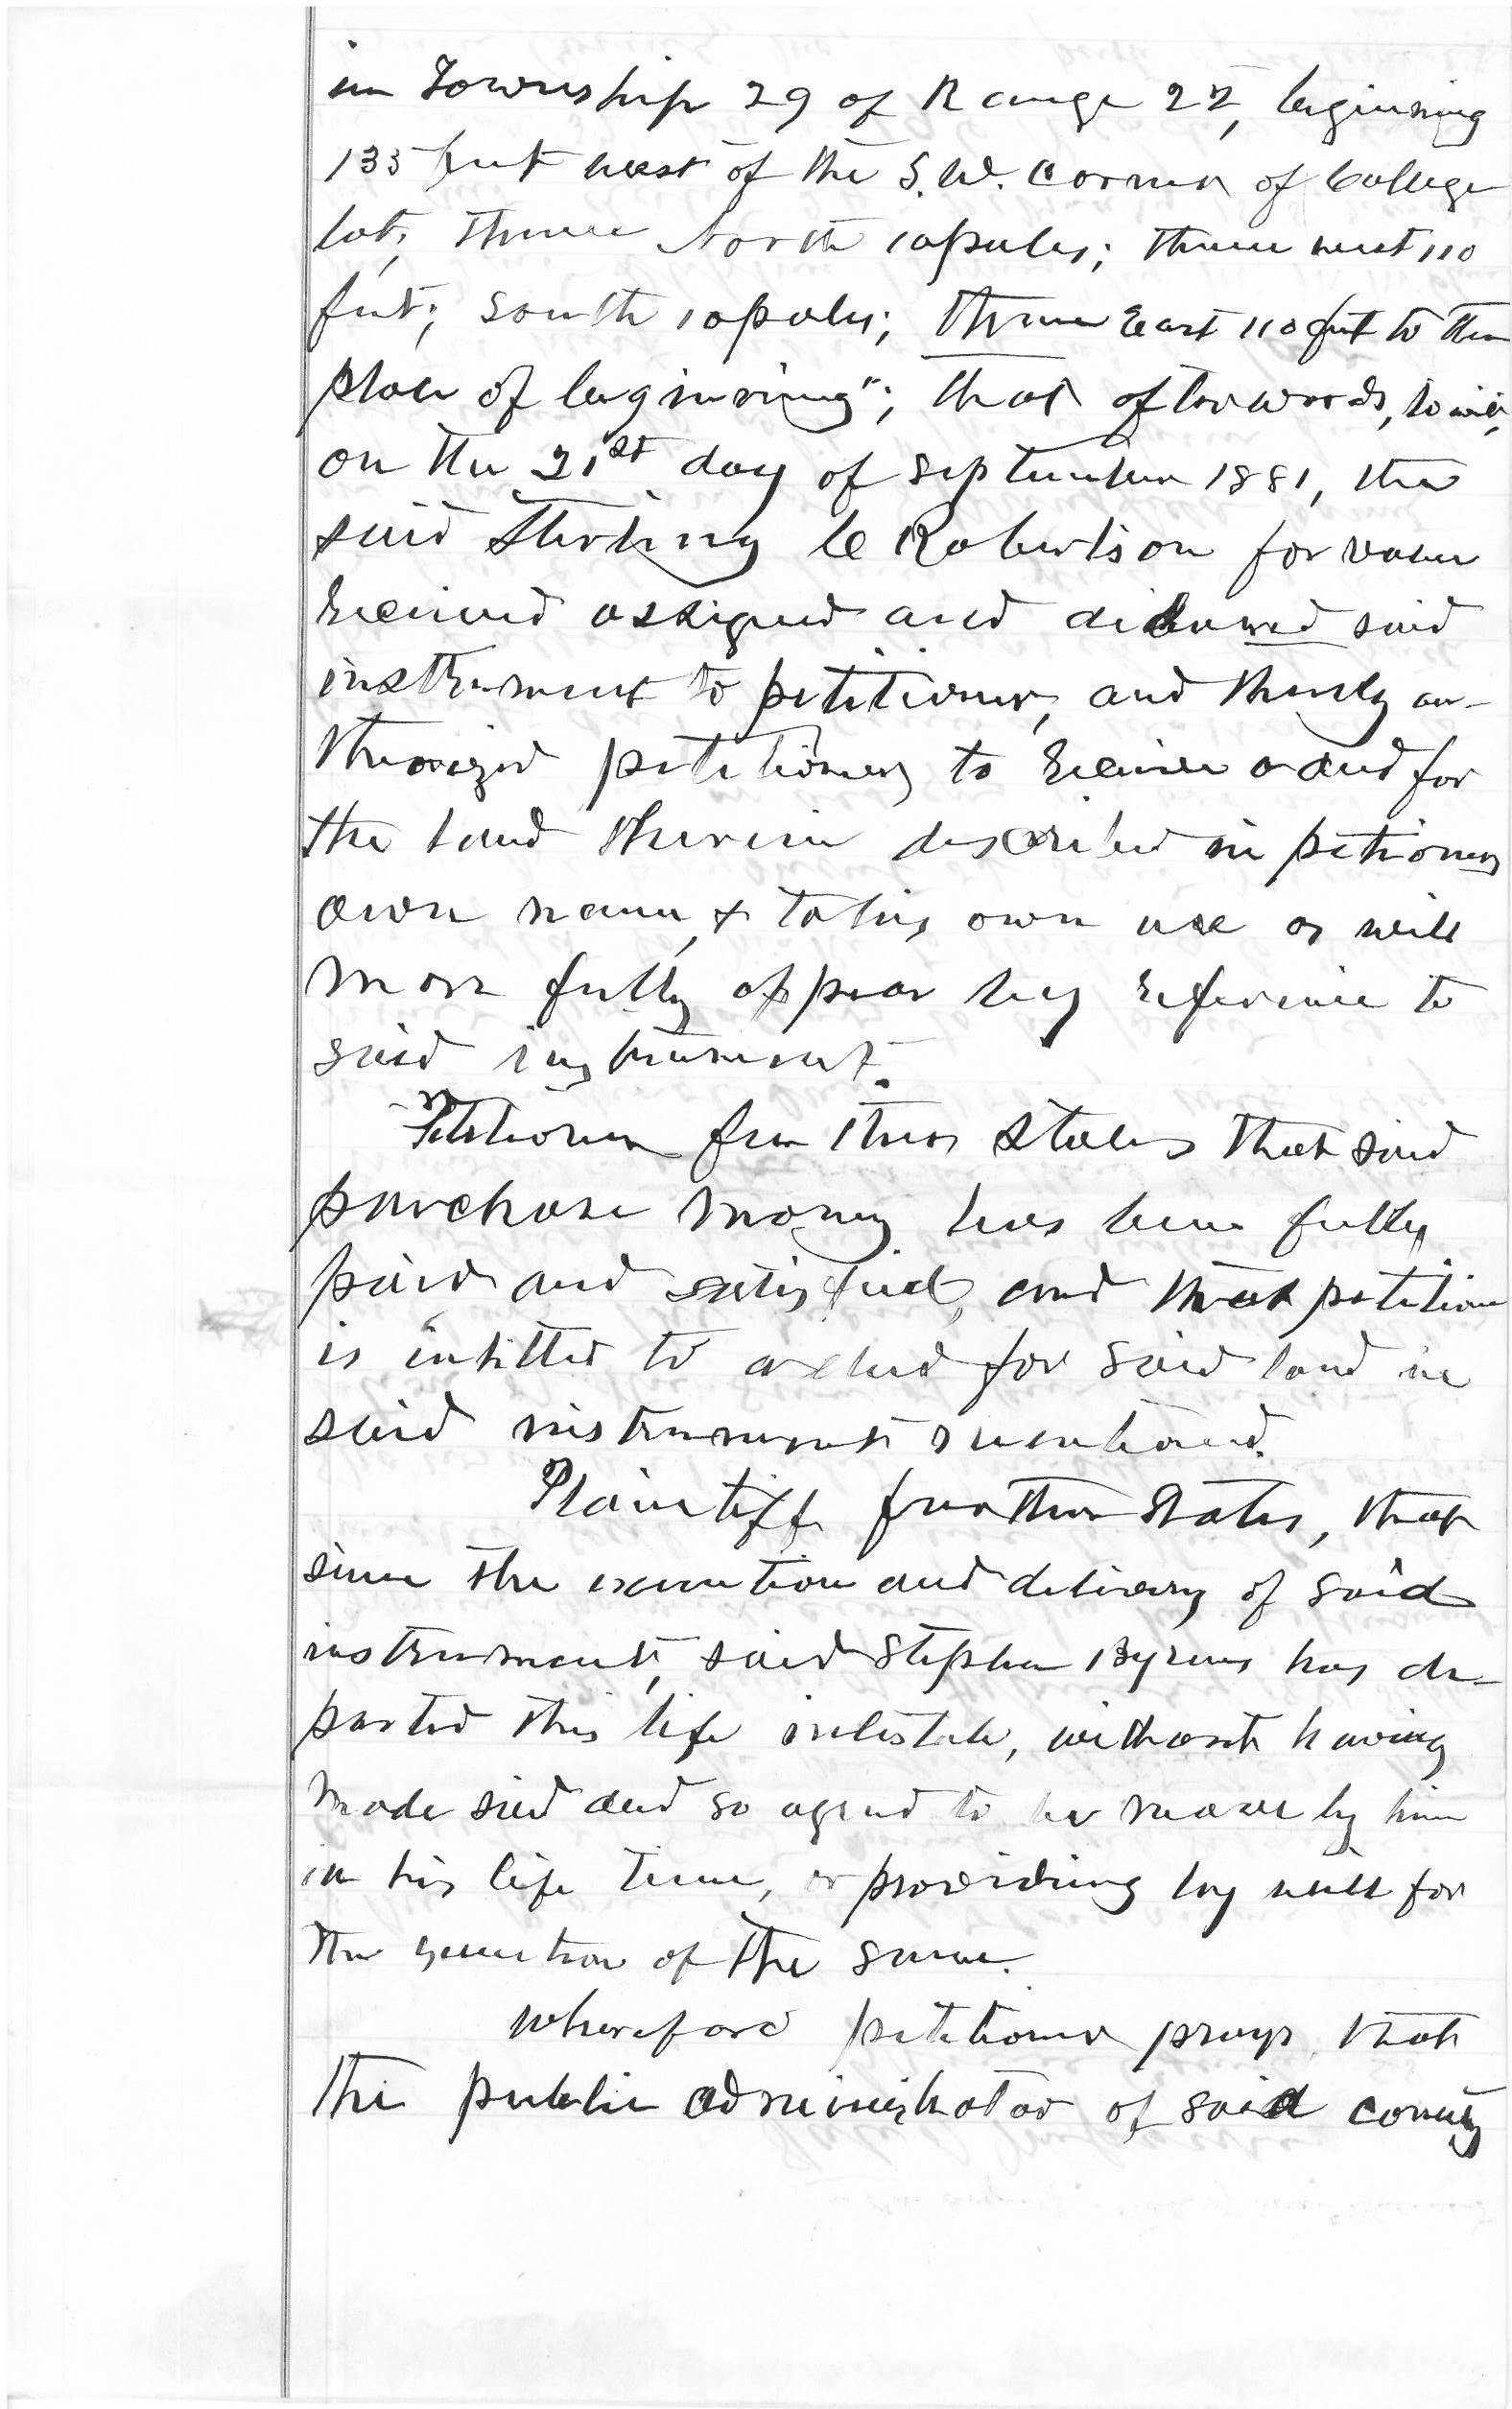 in Township 29 of Range 22, beginning
135 feet west of the S.W. Corner of College
lot, thence North 10 poles; thence west 110
feet; South 10 poles; thence East 110 feet to the
place of beginning"; that afterwards, to wit,
on the 21st day of September 1881, the
said Sterling C Robertson for value
received assigned and delivered said
instrument to petitioner, and thereby au-
thorized petitioner to receive a deed for
the land therein described in petitioners
own name, & to his own use as will
more fully appear by reference to
said instrument.
Petitioner further states that said
purchase money has been fully
paid and satisfied, and that petitioner
is intitled to a deed for said land in
said instrument mentioned.
Plaintiff further States, that
since the execution and delivery of said
instrument, said Stephen Byrns has de-
parted this life intestate, without having
made said deed so agreed to be made by him
in his life time, or providing by will for
the execution of the same.
Wherefore petitioner prays that
the public administrator of said county